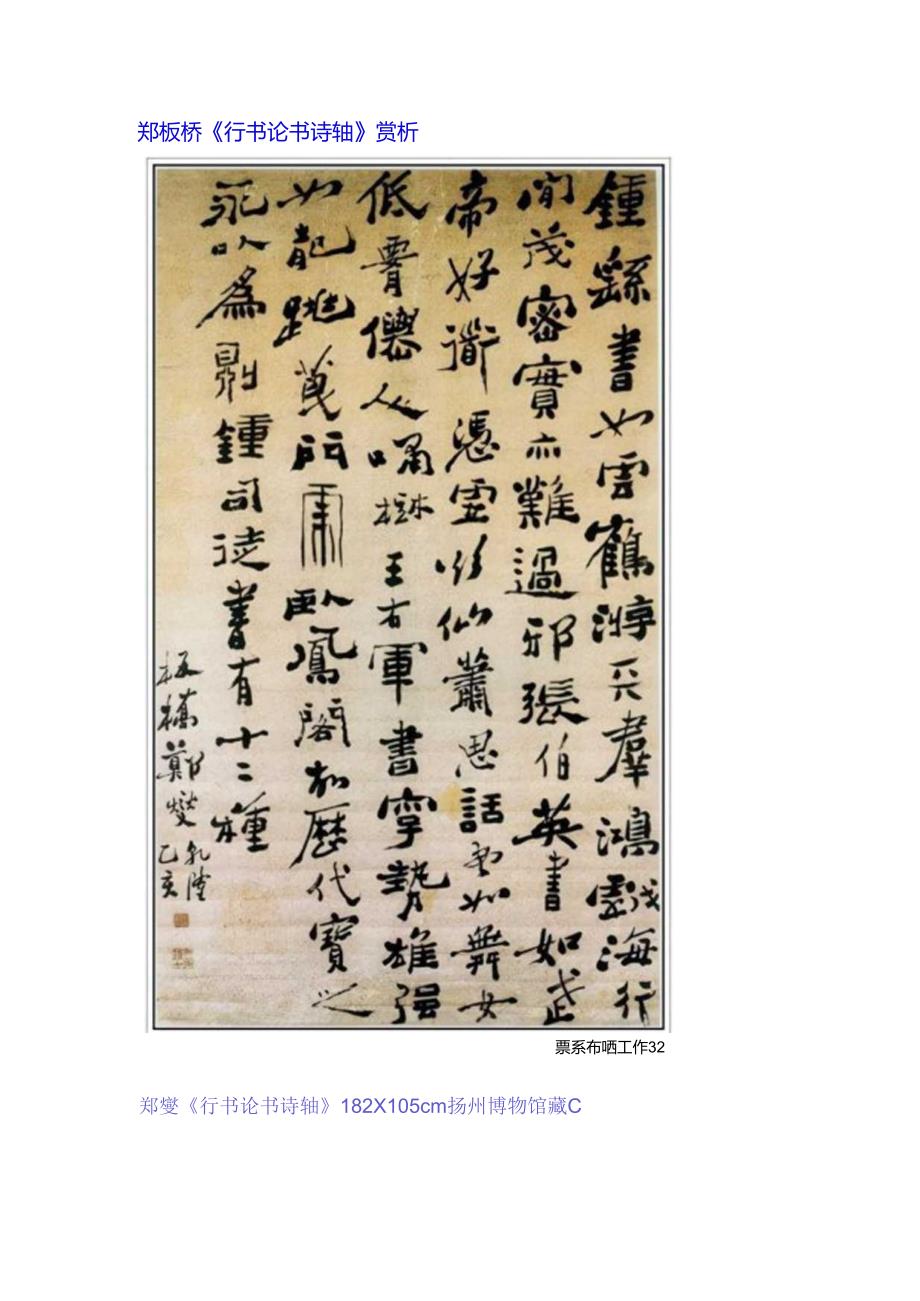 郑板桥《行书论书诗轴》赏析
鍾繇書如雲鶴游天羣鴻戲海行
間茂密實亦難過耶張伯英書如武
帝好衟憑虛欲仙蕭思話書如舞女
低腰僊人嘯樹王右軍書字勢雄强
如龍跳天門虎臥鳳閣故歷代寶之
永以為則鍾司徒書有十二種
板橋鄭燮
乾隆
乙亥
票系布哂工作32
郑燮《行书论书诗轴》182X105cm扬州博物馆藏C